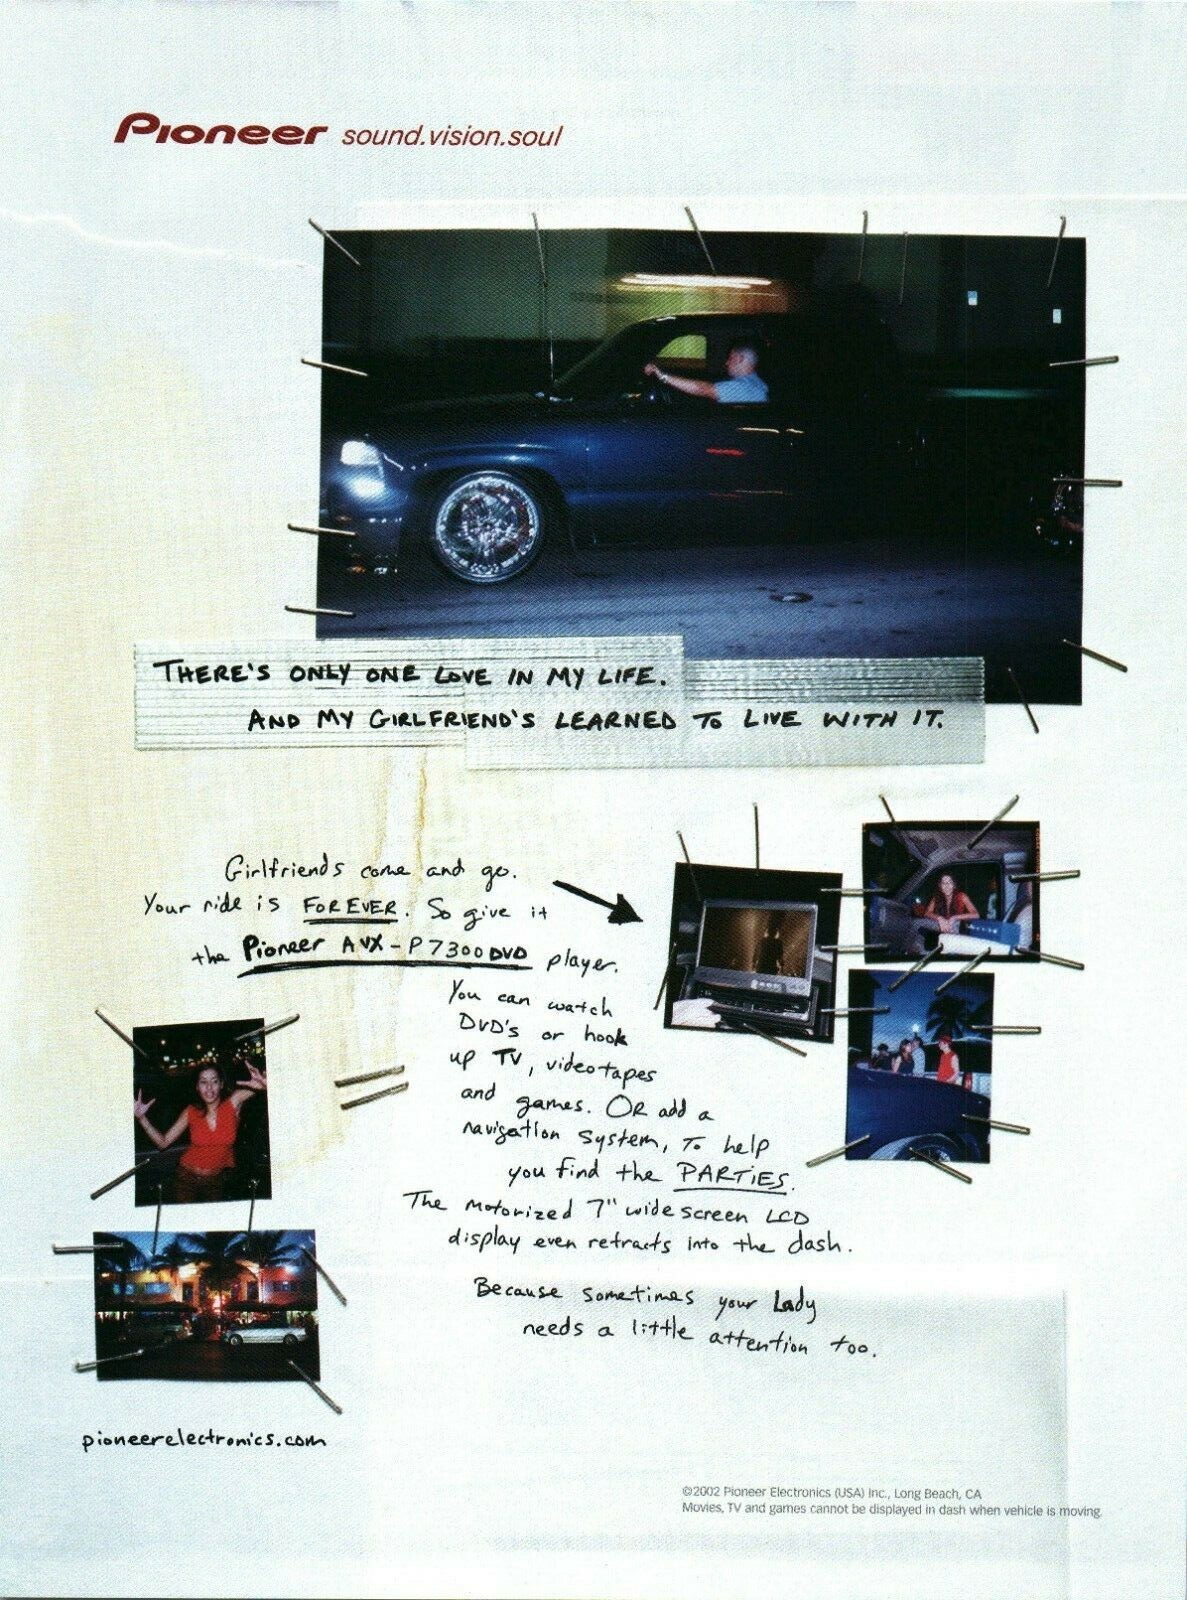 Pioneer sound.vision.soul
THERE'S ONLY ONE LOVE IN MY LIFE.
AND MY GIRLFRIEND'S LEARNED TO LIVE WITH IT.
Girlfriends come and go.
Your ride is FOREVER. So give it
the Pioneer AVX-P7300DVD player.
You can watch
DVD'S or hook
up TV, videotapes
and games. OR add a
navigation system, To help
you find the PARTiES.
The Motorized 7" widescreen LCD
display even retracts into the dash.
Because sometimes your Lady
needs a little attention too.
pioneerelectronics.com
©2002 Pioneer Electronics (USA) Inc., Long Beach, CA
Movies, TV and games cannot be displayed in dash when vehicle is moving.